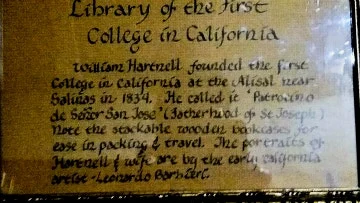 Library of the First
College in California
William Hartnell founded the first
College in California at the Alisal near
Salinas in 1834. He called it "Patrocino
de Señor San Jose" (Fatherhood of St Joseph)
Note the stackable wooden bookcases for
ease in packing & travel. The portraits of
Hartnell & wife are by the early California
artist - Leonardo Barbieri.